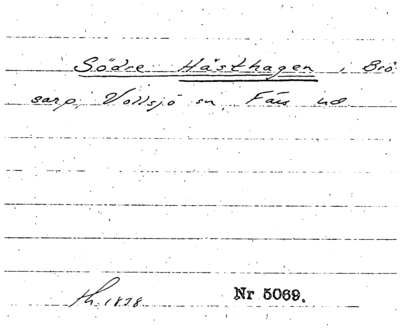 Södre Hästhagen, Brö
sarp, Vollsjö sn Färs hd
th. 1838 Nr 5069.